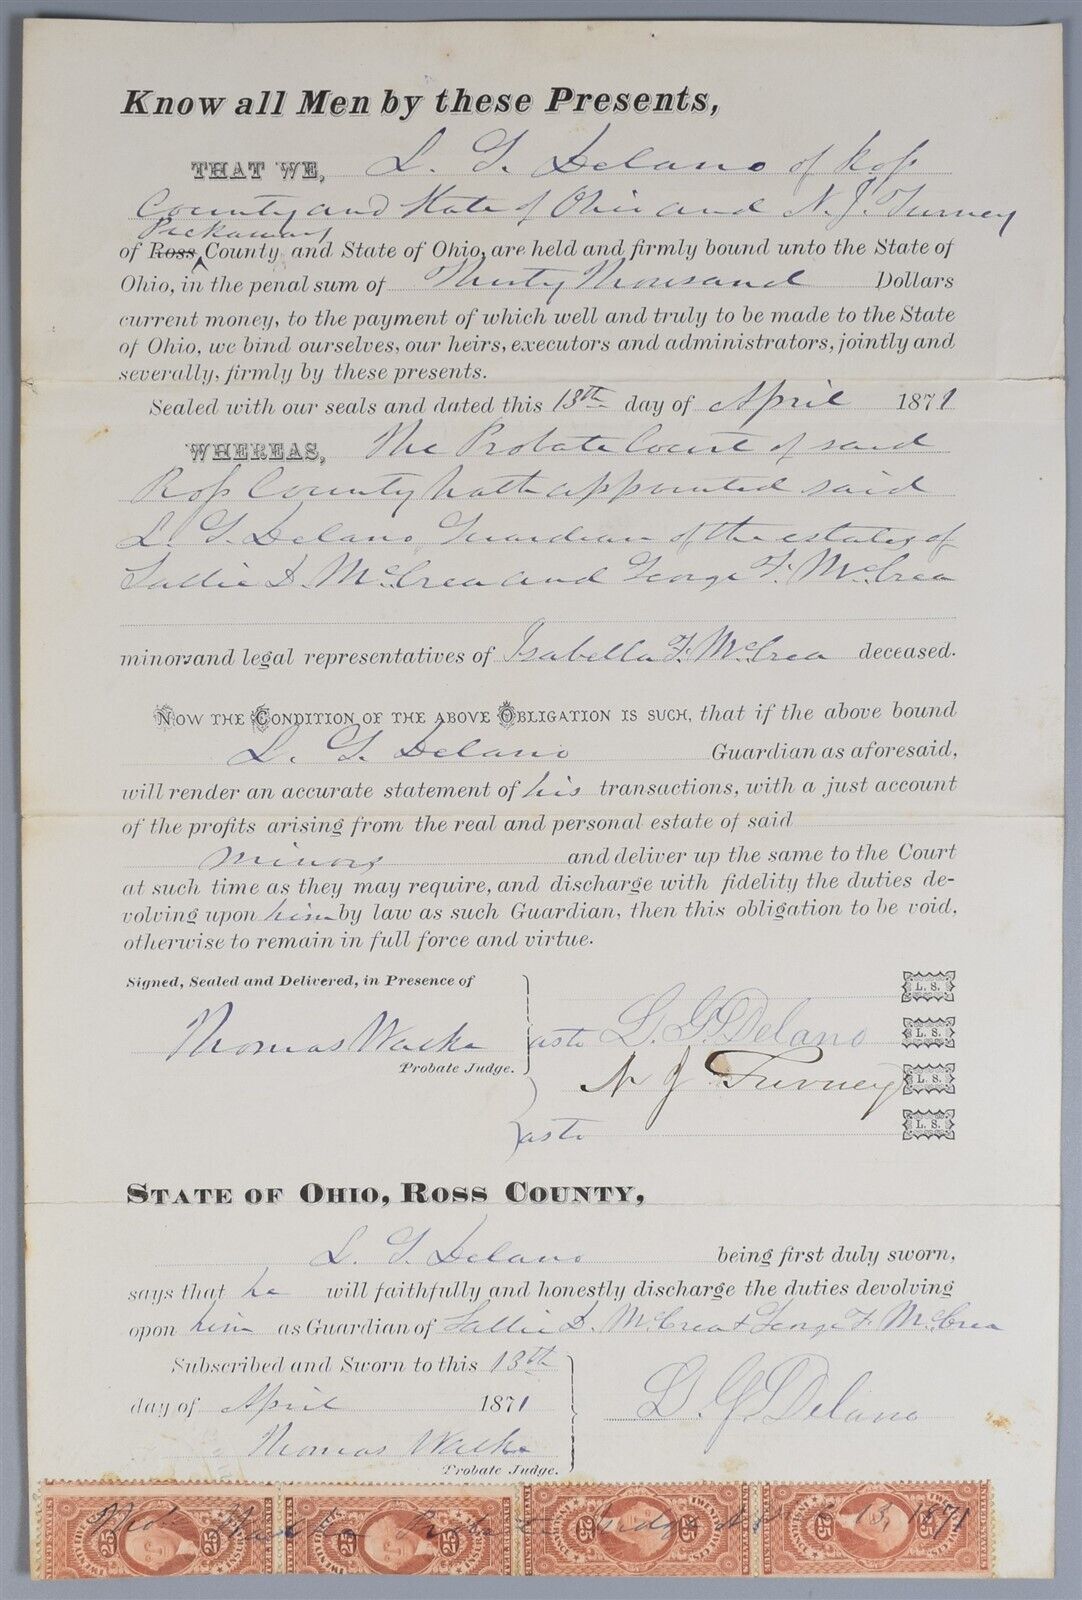 Know all Men by these Presents,
THAT WE, L. G. Delano of Ross
County and State of Ohio and N. J. Turney
Pickaway
of Ross County and State of Ohio, are held and firmly bound unto the State of
Ohio, in the penal sum of Thirty Thousand Dollars
current money, to the payment of which well and truly to be made to the State
of Ohio, we bind ourselves, our heirs, executors and administrators, jointly and
severally, firmly by these presents.
Sealed with our seals and dated this 13th day of April 1871
WHEREAS, The Probate Court of said
Ross County hath appointed said
L. G. Delano Guardian of the estates of
Sallie D. McCrea and George F. McCrea
minors and legal representatives of Isabella F. McCrea deceased.
NOW THE CONDITION OF THE ABOVE OBLIGATION IS SUCH, that if the above bound
L. G. Delano Guardian as aforesaid,
will render an accurate statement of his transactions, with a just account
of the profits arising from the real and personal estate of said
minors and deliver up the same to the Court
at such time as they may require, and discharge with fidelity the duties de-
volving upon him by law as such Guardian, then this obligation to be void,
otherwise to remain in full force and virtue.
Signed, Sealed and Delivered, in Presence of
L. S.
Thomas Walke as to L. G. Delano L. S.
Probate Judge.
N J Turney L. S.
as to L. S.
STATE OF OHIO, ROSS COUNTY,
L. G. Delano being first duly sworn,
says that he will faithfully and honestly discharge the duties devolving
upon him as Guardian of Sallie D. McCrea & George F. McCrea
Subscribed and Sworn to this 13th
day of April 1871 L. G. Delano
Thomas Walke
Probate Judge.
25 25 25 25 25 25 25 25
Walke Probate Judge April 13, 1871